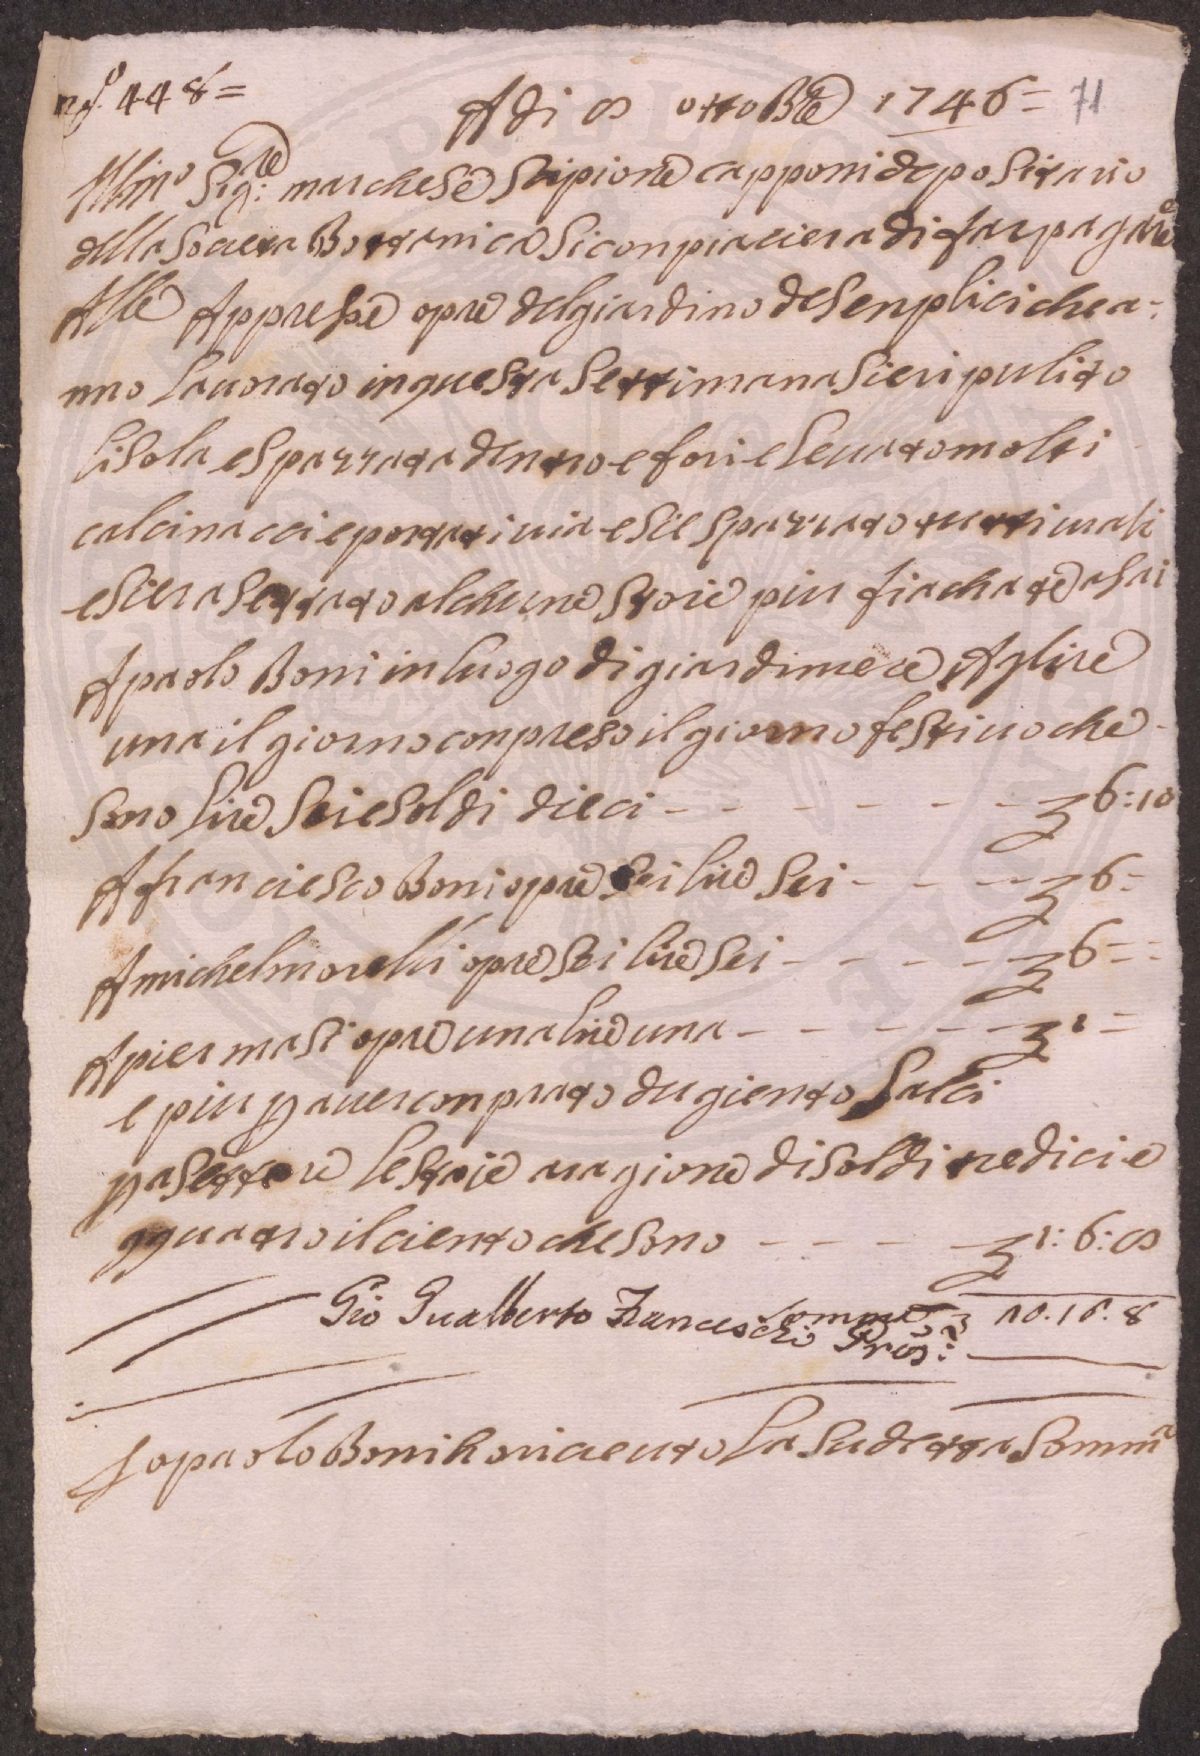 nº. 448=
Adi 8 ottoBre 1746= 71
Illmo Sigre: marchese Scipione capponi depositario
della Societa Bottanica Siconpiaciera di far pagare
Alle Appresse opre del giardino de Senplici che a-
nno lavorato in questa Settimana Sieri pulito
lisola e Spazzata dentro e fori e levato molti
calcinacci e portati via e Sie Spazzato tutti viali
e Siera Settato alchune Stoie piu fiachate asai
A paolo Boni in luogo di giardiniere A lire
una il giorno conpreso il giorno festivo che
Sono lire Sei e Soldi dieci - - - - - - - 6:10
A franciesco Boni opre Sei lire Sei - - - - 6=
A michel morelli opre Sei lire Sei - - - - - 6==
A pier masi opre una lire una - - - - - 1=
e piu p aver conprato dugiento Salci
p asettare le Stoie a ragione di Soldi tredici e
qquatro il ciento che Sono - - - - 1:6:8
Somma 20.16.8
Gio Gualberto Franceschi Pros:
Io paolo Boni ho riceuto la Sudetta Somma